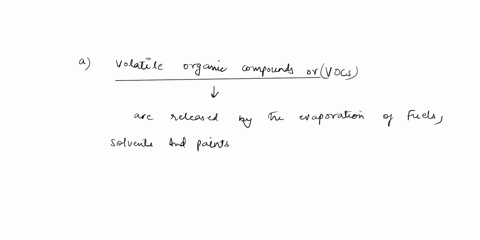 a) Volatile organic compounds or (VOCs)
↓
are released by the evaporation of fuels,
solvents and paints